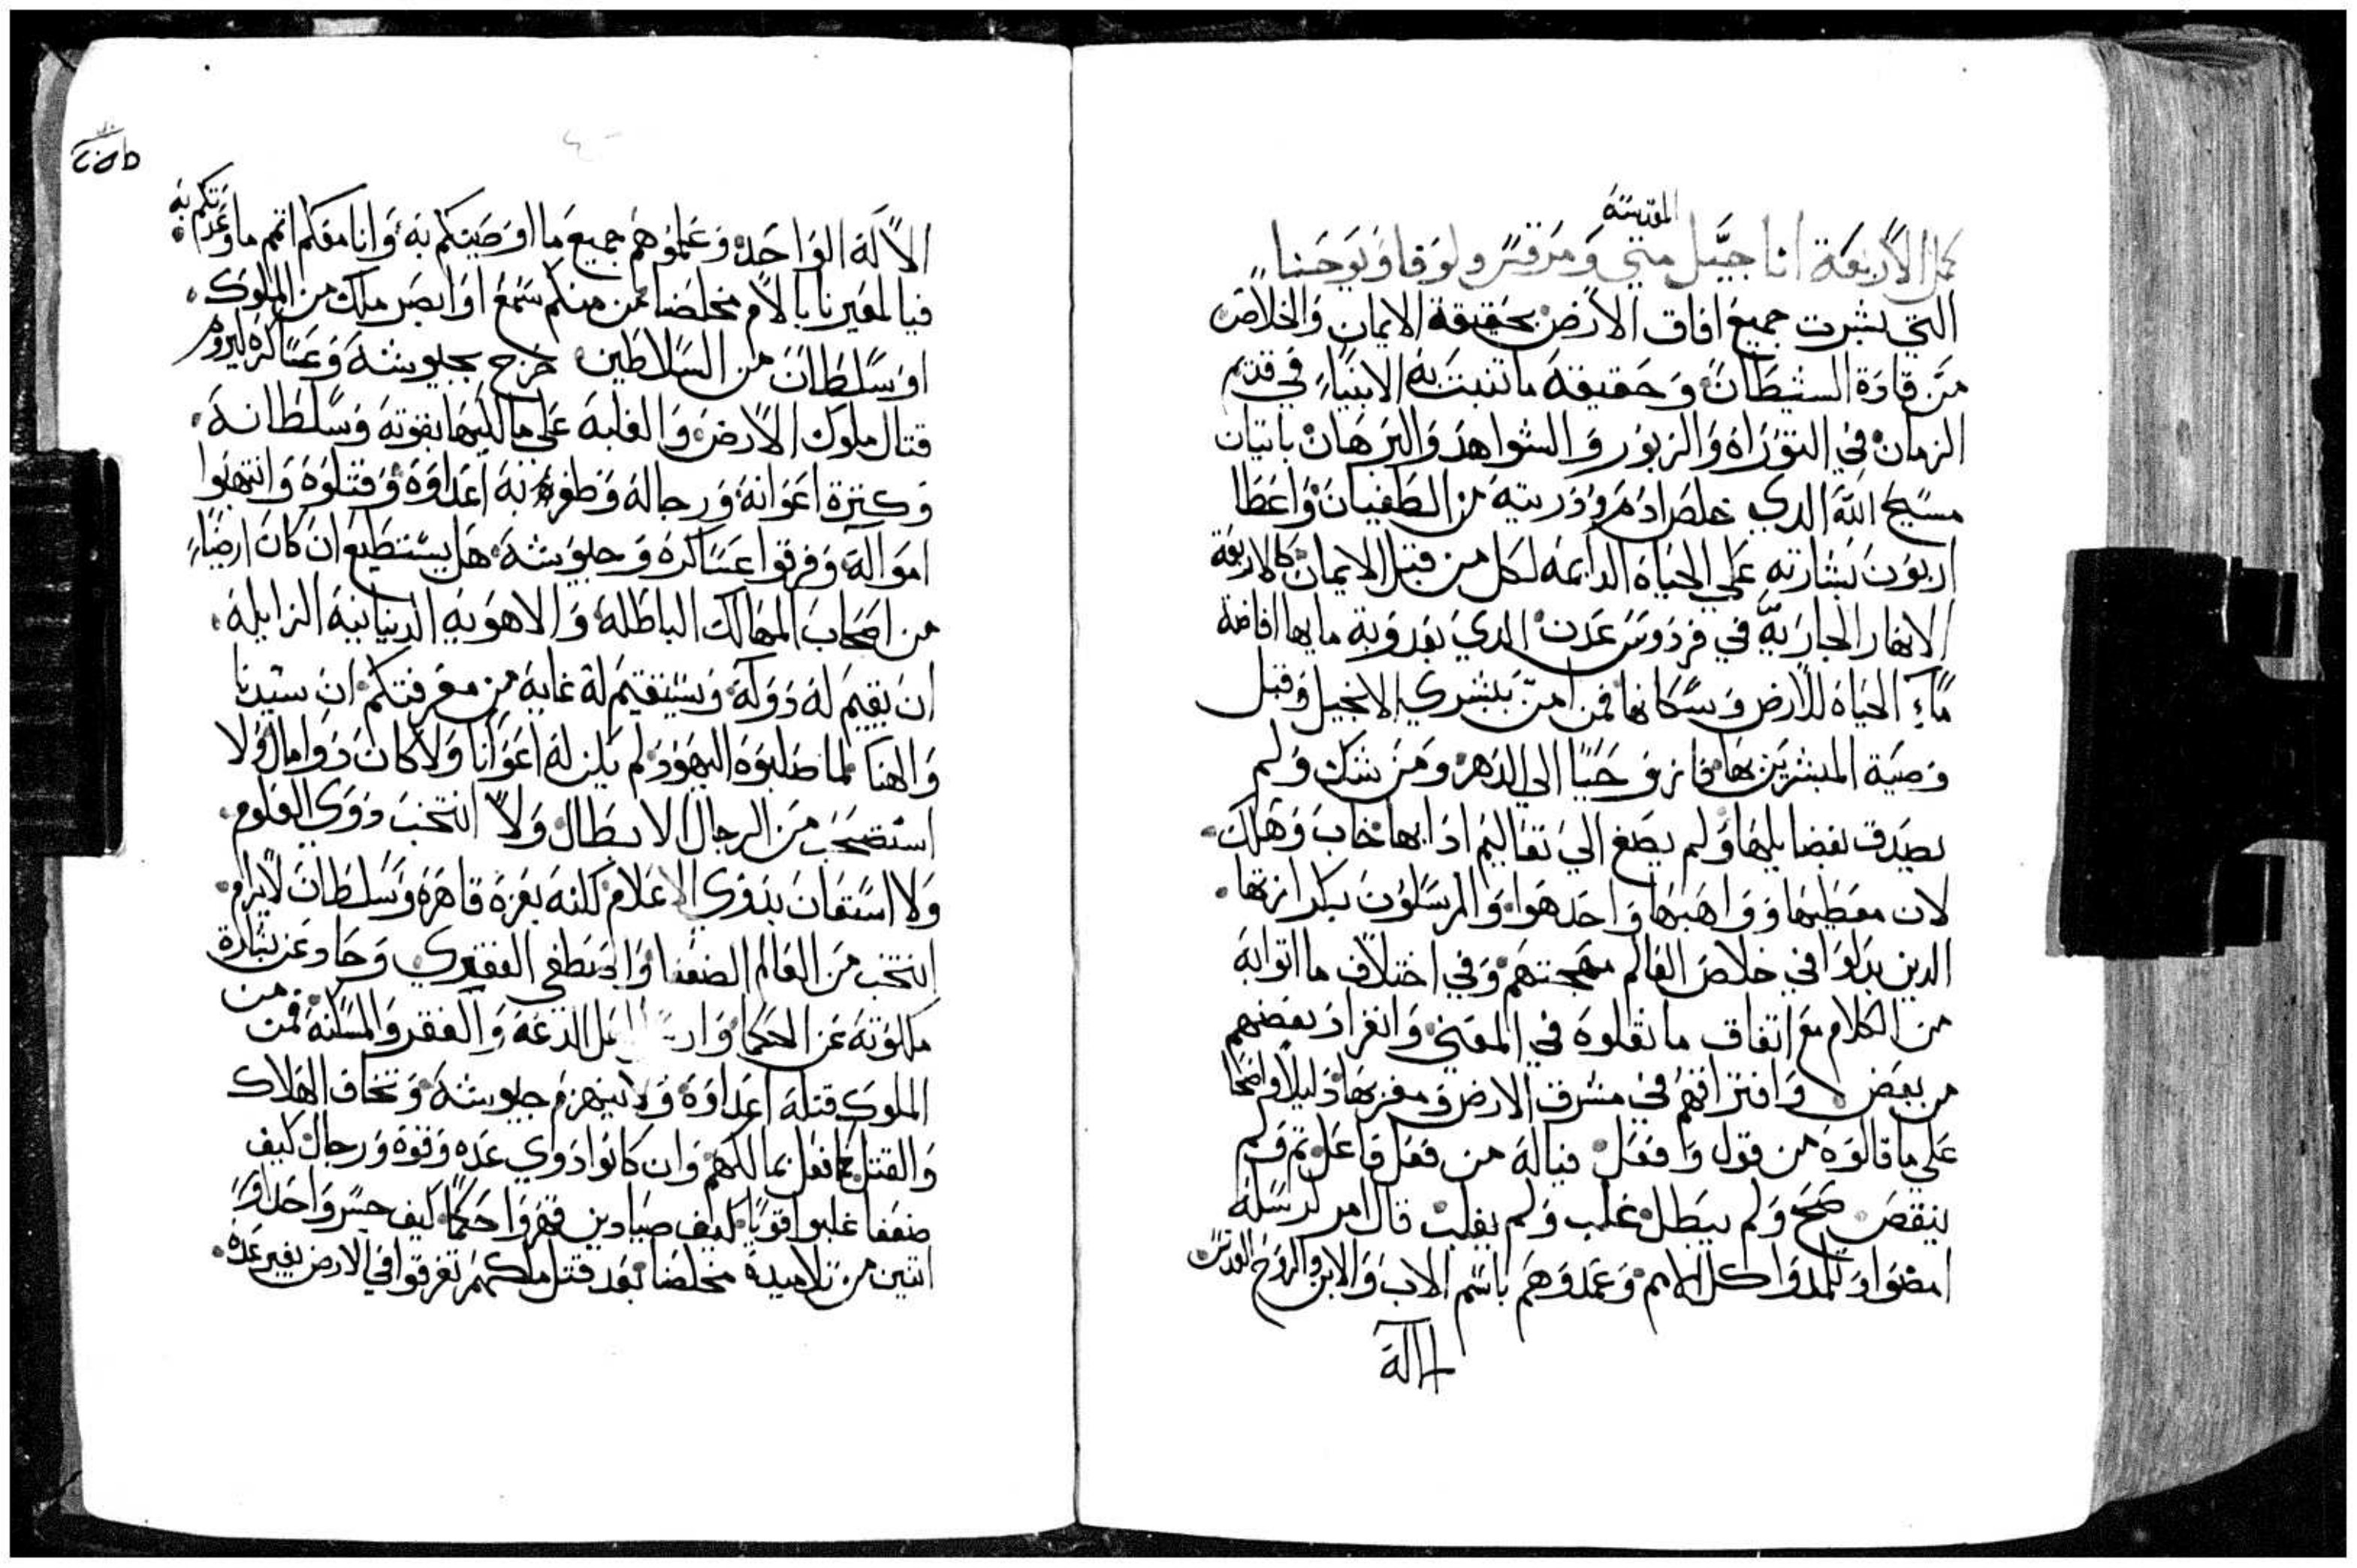 كمل الاربعة اناجيل متي ومرقس ولوقا ويوحنا
المقدسة
التي بشرت جميع افاق الارض بحقيقة الايمان والخلاص
من قادة الشيطان وحقيقة ما تنبت به الانبياء في قديم
الزمان في التوراه والزبور والشواهد والبرهان باتيان
مسيح الله الدي خلص ادم ودريته من الطغيان واعطا
اربون بشارته علي الحياه الدايمه لكل من قبل الايمان كالاربعة
الانهار الجاريه في فردوس عدن الدي بعدوبة مايها افاضة
مآء الحياه للارض وسكانها فمن امن ببشري الانجيل وقبل
وصية المبشرين بها فاز وحيا الي الدهر ومن شك ولم
يصدق بفضايلها ولم يصغ الي تعاليم ادابها خاب وهلك
لان معطيها وواهبها واحد هوا والمرسلون بكرازتها
الدين بدلوا في خلاص العالم مهجتهم وفي اختلاف ما اتوا به
من الكلام مع اتفاق ما نقلوه في المعني وانفراد بعضهم
من بعض وافتراقهم في مشرق الارض ومغربها دليلا واضحا
علي ما قالوه من قول وافعل فياله من فعل فاعل تم ولم
ينقص صح ولم يبطل غلب ولم يغلب قال امر لرسله
امضوا وتلمدوا كل الامم وعمدوهم باسم الاب والابن والروح القدس
الاله
الاله الواحد وعلموهم جميع ما اوصيتكم به وانا معكم اتمم ما وعدتكم به
فيا لمعيرنا بالام مخلصنا من منكم سمع او ابصر ملك من الملوك
او سلطان من السلاطين خرج بجيوشه وعساكره ليروم
قتال ملوك الارض والغلبه علي ممالكها بقوته وسلطانه
وكترة اعوانه ورجاله وظفروا به اعداوه وقتلوه وانتهبوا
امواله وفرقوا عساكره وجيوشه هل يستطيع ان كان ارضاء
من اصحاب الممالك الباطله والاهويه الدنيانية الزايلة
ان يقيم له دولة ويستقيم له غاية من معرفتكم ان سيدنا
والهنا لما صلبوه اليهود لم يكن له اعوانا ولا كان دوا مال ولا
استصحب من الرجال الابطال ولا انتخب دوي العلوم
ولا استعان بدوي الاعلام لكنه بعزة قاهره وسلطان لا يرام
انتخب من العالم الضعفا واصطفي الفقيري وحاد عن بشارة
ملكوته عن الحكما وارسل اهل الدعه والفقر والمسكنه فمن من
الملوك قتله اعداوه ولا ينهزم جيوشه وتخاف الهلاك
والقتل كما فعل بمالكهم وان كانوا دوي عده وقوة ورجال كيف
ضعفا غلبوا اقويا كيف صيادين قهروا حكما كيف جسر واحد او
اتنين من تلاميده مخلصنا بعد قتل ملكهم تفرقوا في الارض بغير عده